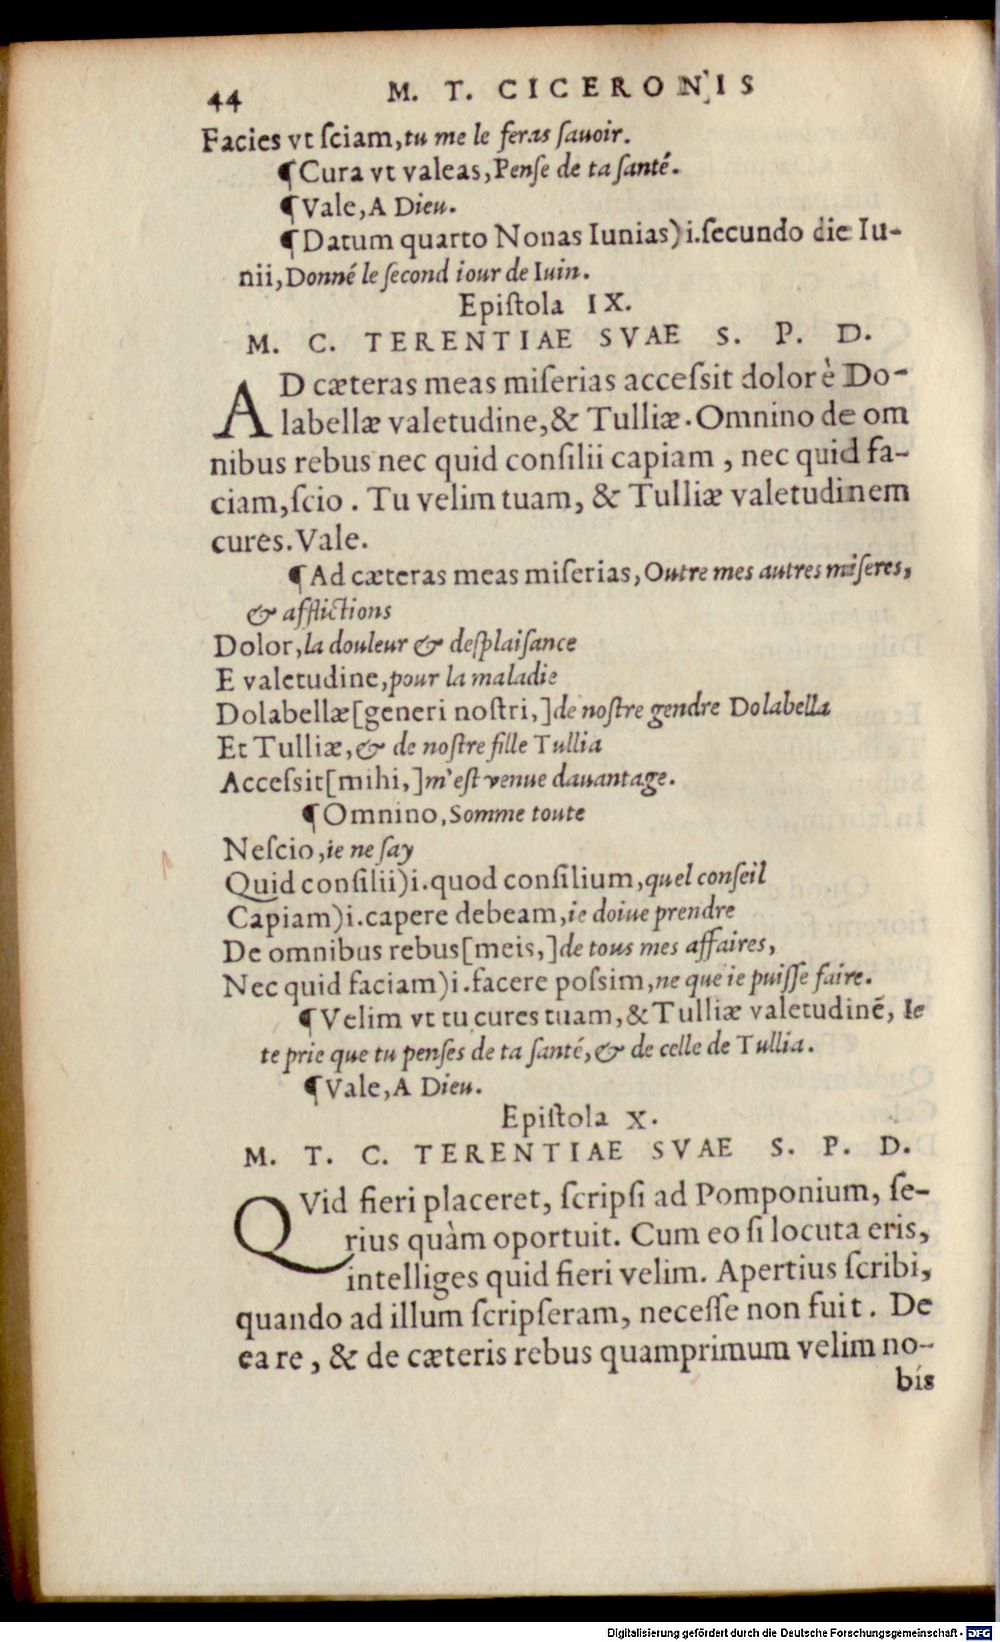 44 M. T. CICERONIS
Facies vt ſciam, tu me le feras ſauoir.
¶Cura vt valeas, Penſe de ta ſanté.
¶Vale, A Dieu.
¶Datum quarto Nonas Iunias) i.ſecundo die Iu-
nii, Donné le ſecond iour de Iuin.
Epiſtola IX.
M. C. TERENTIAE SVAE S. P. D.
AD cæteras meas miſerias acceſsit dolor è Do-
labellæ valetudine, & Tulliæ. Omnino de om
nibus rebus nec quid conſilii capiam, nec quid fa-
ciam, ſcio. Tu velim tuam, & Tulliæ valetudinem
cures. Vale.
¶Ad cæteras meas miſerias, Outre mes autres miſeres,
& afflictions
Dolor, la douleur & deſplaiſance
E valetudine, pour la maladie
Dolabellæ[generi noſtri,] de noſtre gendre Dolabella
Et Tulliæ, & de noſtre fille Tullia
Acceſsit[mihi,] m'eſt venue dauantage.
¶Omnino, Somme toute
Neſcio, ie ne ſay
Quid conſilii) i.quod conſilium, quel conſeil
Capiam) i.capere debeam, ie doiue prendre
De omnibus rebus[meis,] de tous mes affaires,
Nec quid faciam) i.facere poſsim, ne que ie puiſſe faire.
¶Velim vt tu cures tuam, & Tulliæ valetudinē, Ie
te prie que tu penſes de ta ſanté, & de celle de Tullia.
¶Vale, A Dieu.
Epiſtola X.
M. T. C. TERENTIAE SVAE S. P. D.
QVid fieri placeret, ſcripſi ad Pomponium, ſe-
rius quàm oportuit. Cum eo ſi locuta eris,
intelliges quid fieri velim. Apertius ſcribi,
quando ad illum ſcripſeram, neceſſe non fuit. De
ea re, & de cæteris rebus quamprimum velim no-
bis
Digitalisierung gefördert durch die Deutsche Forschungsgemeinschaft - DFG